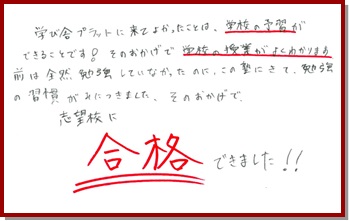 学び舎プラットに来てよかったことは、学校の予習が
できることです! そのおかげで学校の授業がよくわかります
前は全然勉強していなかったのに、この塾にきて、勉強
の習慣がみにつきました。そのおかげで、
志望校に
合格できました!!